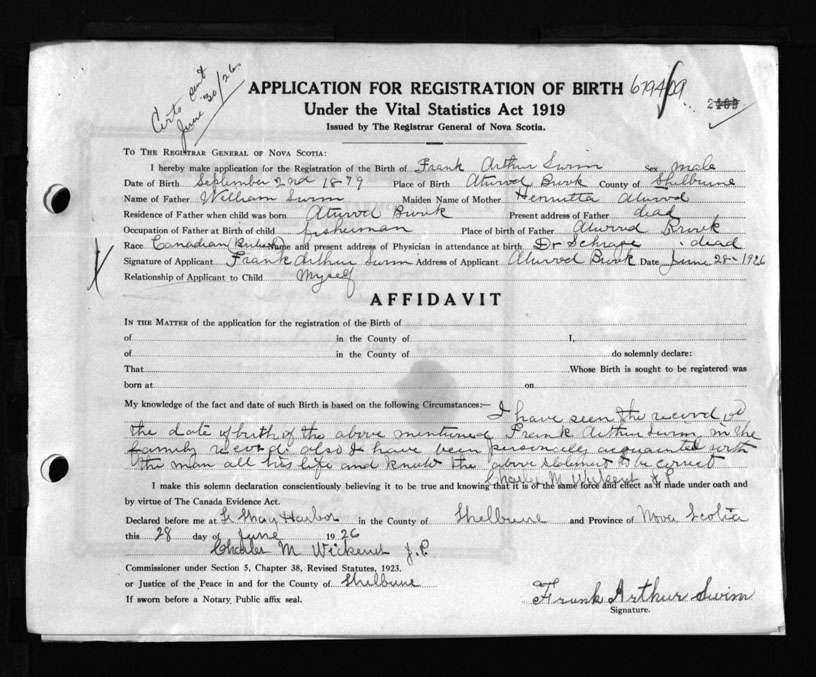 Certs sent
June 30/26.
APPLICATION FOR REGISTRATION OF BIRTH 679409
Under the Vital Statistics Act 1919
Issued by The Registrar General of Nova Scotia.
TO THE REGISTRAR GENERAL OF NOVA SCOTIA:
I hereby make application for the Registration of the Birth of Frank Arthur Swim Sex Male
Date of Birth September 2nd 1879 Place of Birth Atwood Brook County of Shelburne
Name of Father William Swim Maiden Name of Mother Henrietta Atwood
Residence of Father when child was born Atwood Brook Present address of Father dead
Occupation of Father at Birth of child fisherman Place of birth of Father Atwood Brook
Race Canadian Name and present address of Physician in attendance at birth Dr dead
Signature of Applicant Frank Arthur Swim Address of Applicant Atwood Brook Date June 28 - 1926
Relationship of Applicant to Child Myself
AFFIDAVIT
IN THE MATTER of the application for the registration of the Birth of
of in the County of I,
of in the County of do solemnly declare:
That Whose Birth is sought to be registered was
born at on
My knowledge of the fact and date of such Birth is based on the following Circumstances:— I have seen the record of
the date of birth of the above mentioned Frank Arthur Swim in the
family record. also I have been personally acquainted with
the man all his life and know the above statement to be correct
Charles M
I make this solemn declaration conscientiously believing it to be true and knowing that it is of the same force and effect as if made under oath and
by virtue of The Canada Evidence Act.
Declared before me at Harbor in the County of Shelburne and Province of Nova Scotia
this 28 day of June 1926
Charles M J.P.
Commissioner under Section 5, Chapter 38, Revised Statutes, 1923.
or Justice of the Peace in and for the County of Shelburne
If sworn before a Notary Public affix seal.
Frank Arthur Swim
Signature.